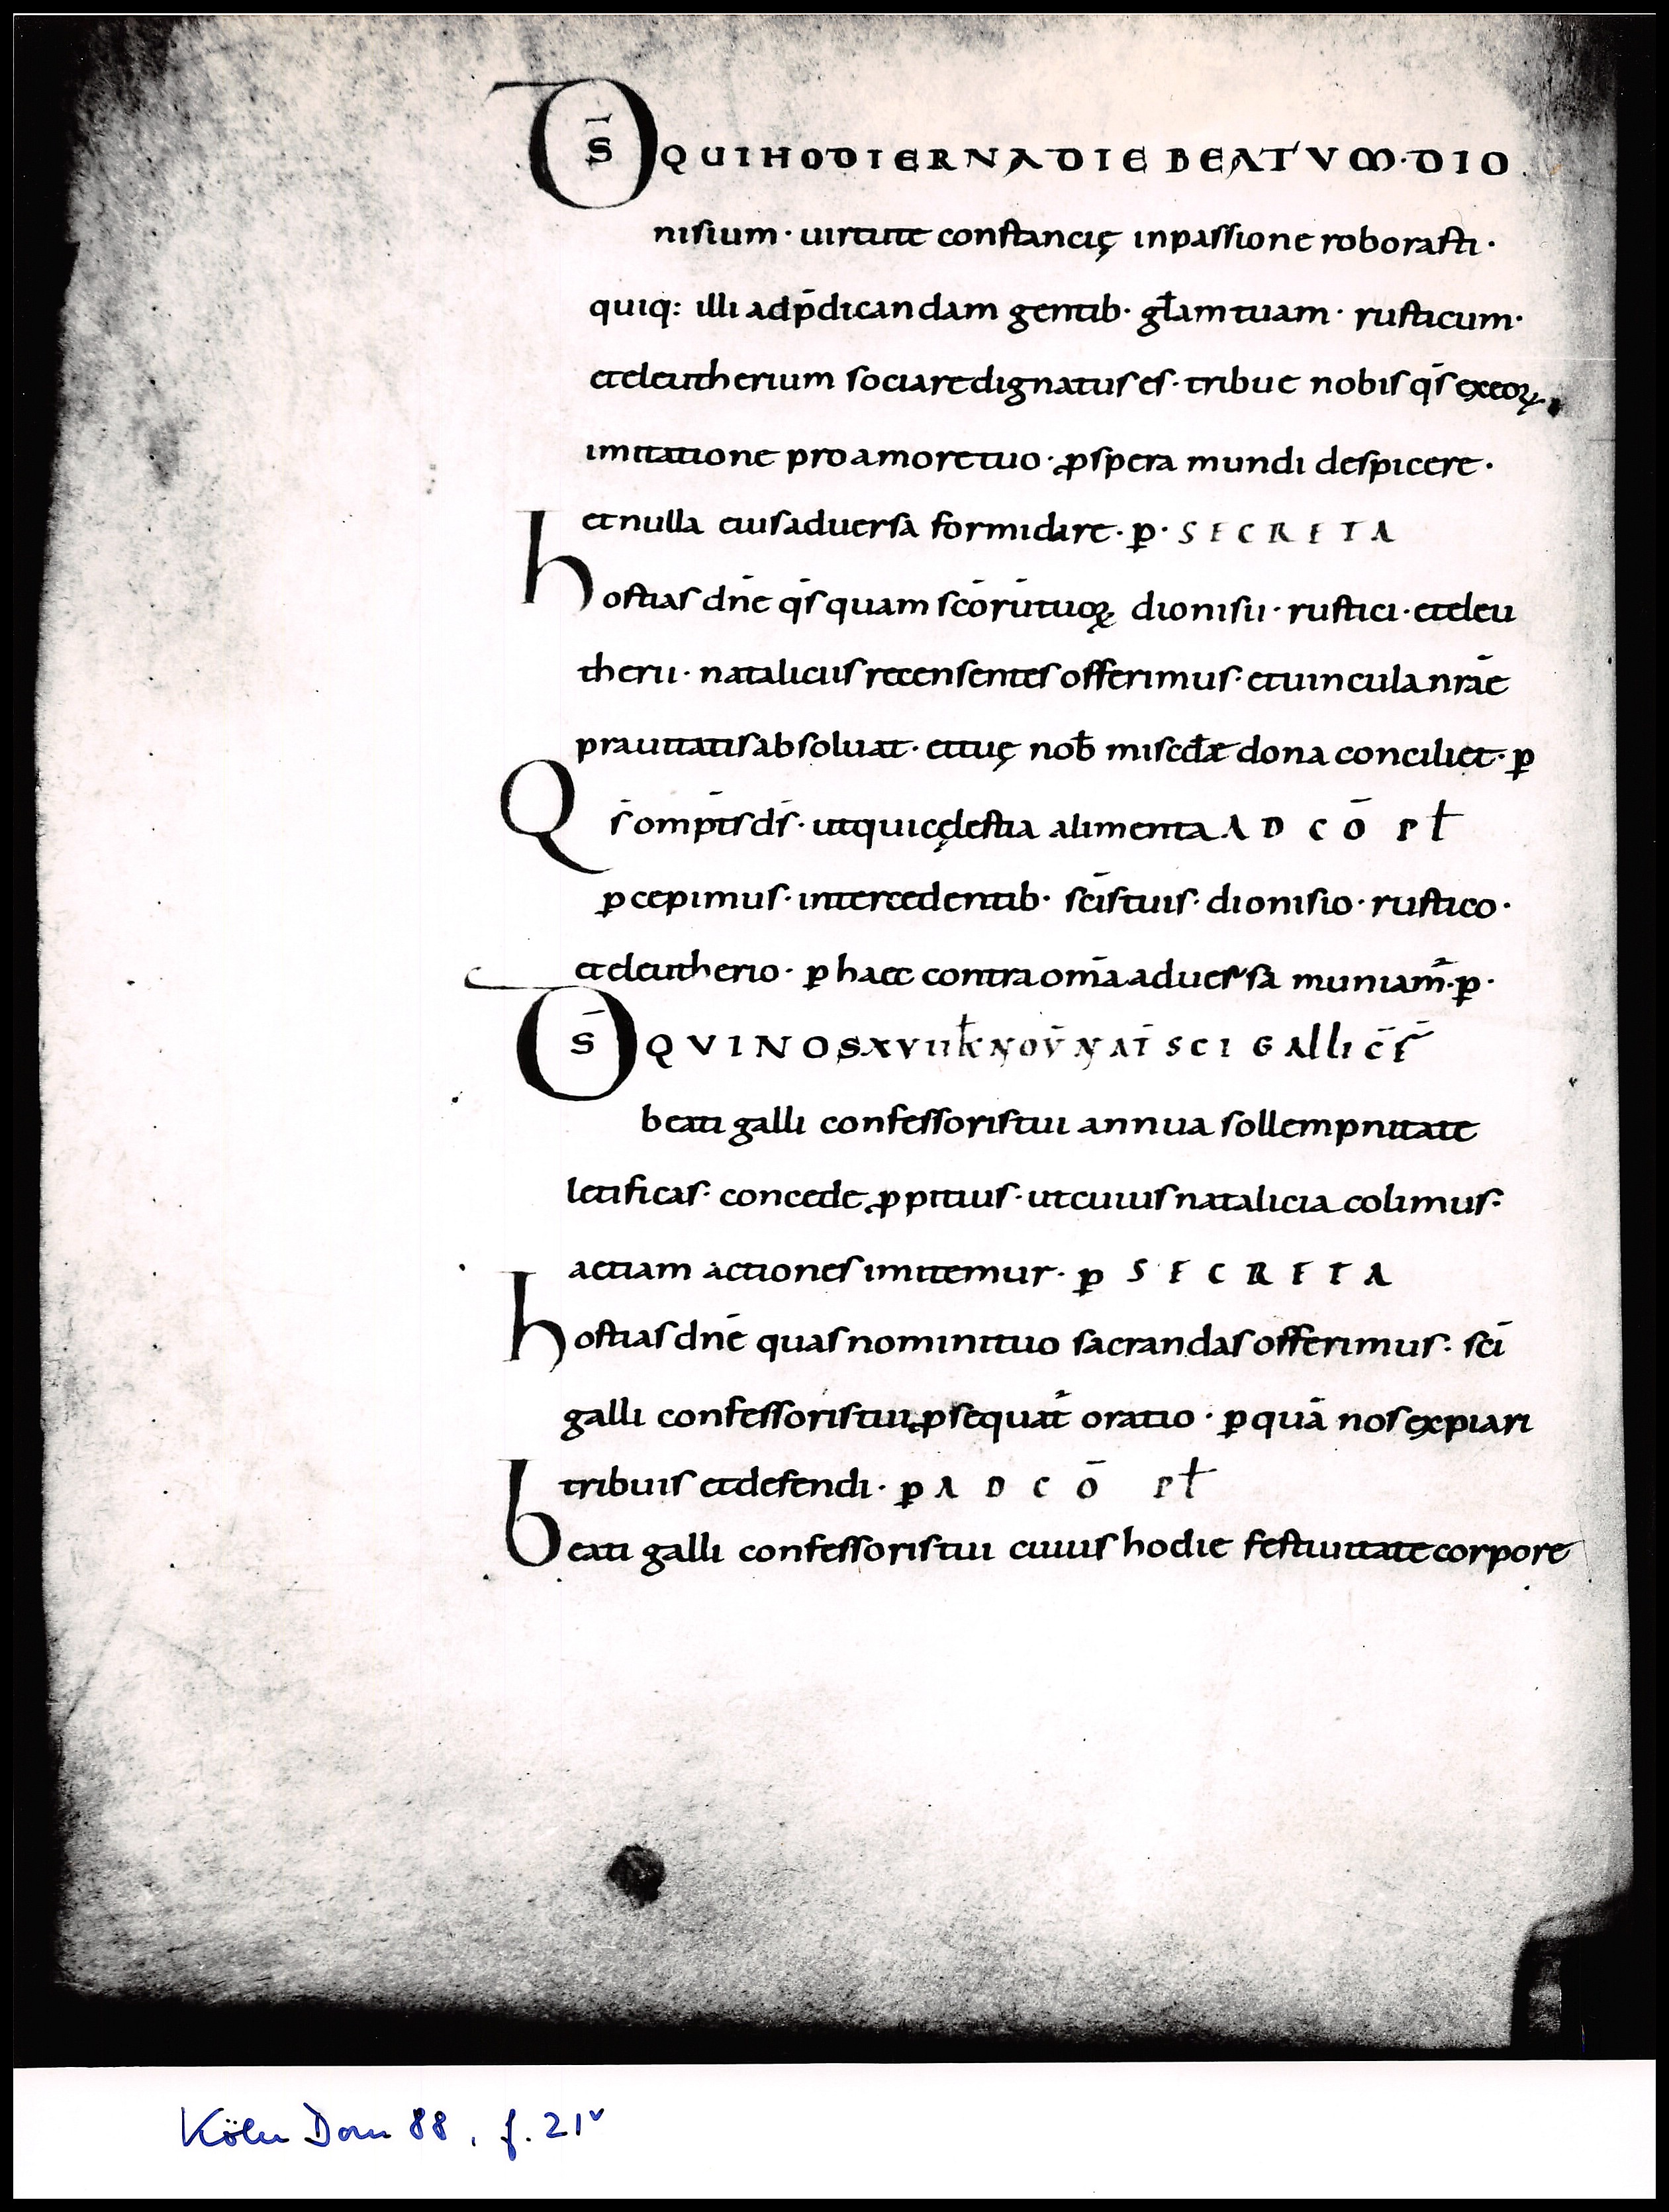 D̄S QUI HODIERNA DIE BEATVM · DIO
nisium · uirtute constancię inpassione roborasti ·
quiq: illi adp̄dicandam gentib· gl̄am tuam · rusticum ·
et eleutherium sociare dignatus es · tribue nobis q̄s exeoꝝ
imitatione pro amore tuo · ꝓspera mundi despicere ·
et nulla eius aduersa formidare · ꝑ · SECRETA
hostias dn̄e q̄s quam sc̄orū tuoꝝ dionisii · rustici · et eleu
therii · nataliciis recensentes offerimus · et uincula nrāe
prauitatis absoluat · et tuę nob̄ miscd̄æ dona conciliet · ꝑ
Q̄s om̄pts d̄s · ut qui cęlestia alimenta AD CŌ Pƚ
ꝑcepimus · intercedentib· sc̄is tuis · dionisio · rustico ·
et eleutherio · ꝑ haec contra om̄a aduersa muniam̄ · ꝑ ·
D̄S QVI NOS XVII k̄ NOV̄ NAT̄ SCI GALLI C̄F̄
beati galli confessoris tui annua sollempnitate
letificas · concede ꝓpitius · ut cuius natalicia colimus ·
aetiam actiones imitemur · ꝑ SECRETA
hostias dn̄e quas nomini tuo sacrandas offerimus · sc̄i
galli confessoris tui ꝓsequat̄ oratio · ꝑ quā nos expiari
tribuis et defendi · ꝑ AD CŌ Pƚ
beati galli confessoris tui cuius hodie festiuitate corpore
Köln Dom 88, f. 21v